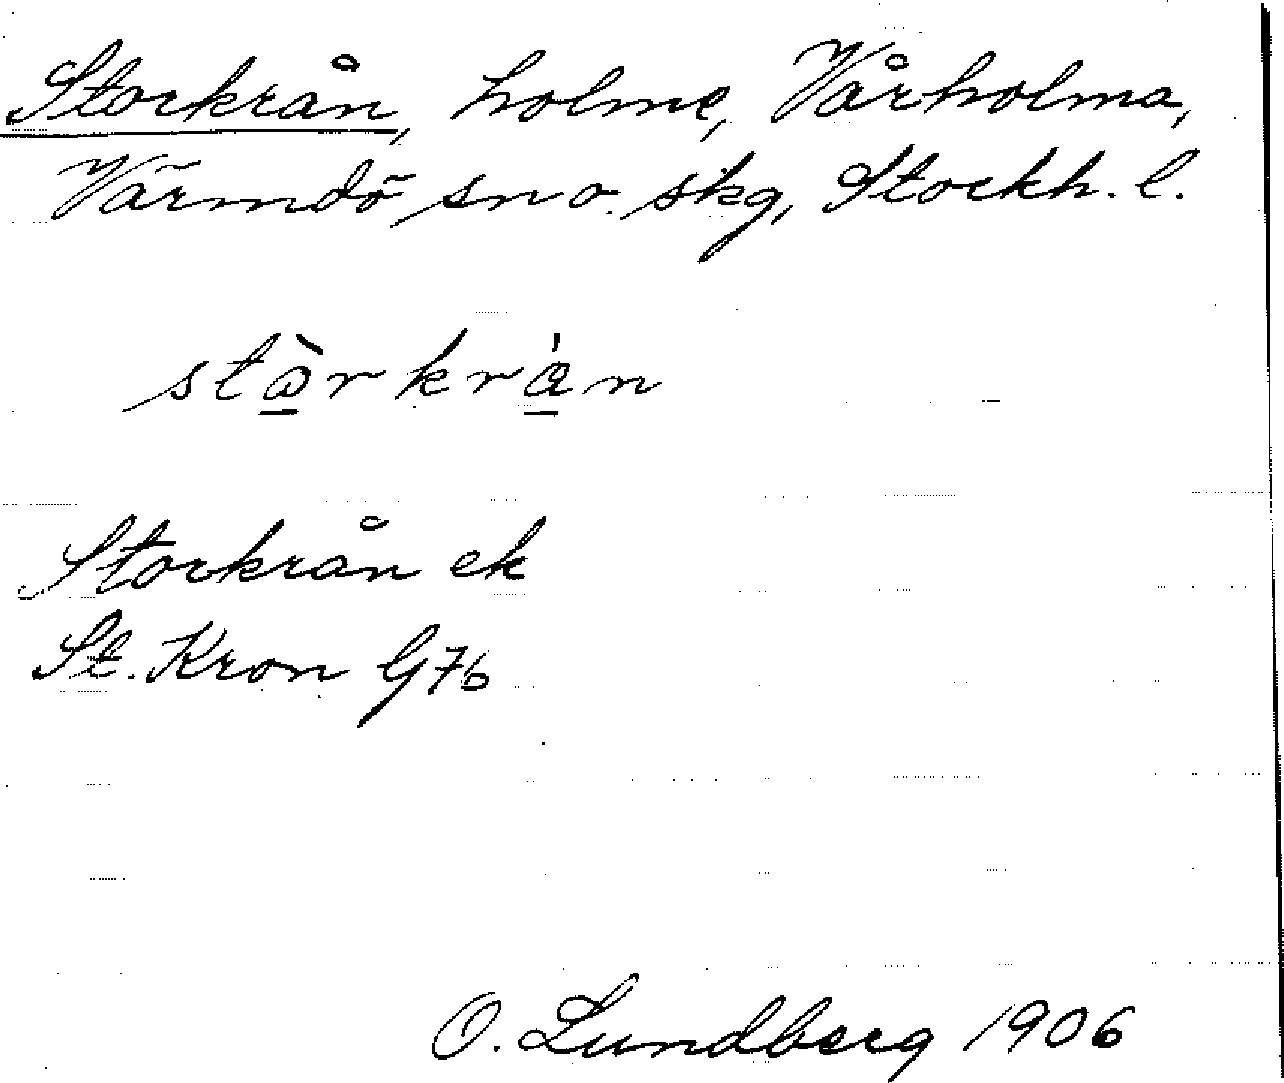 Storkrån, holme, Vårholma,
Värmdö sn o. skg, Stockh. l.
stòrkrån
Storkrån ek
St. Kron G76
O. Lundberg 1906